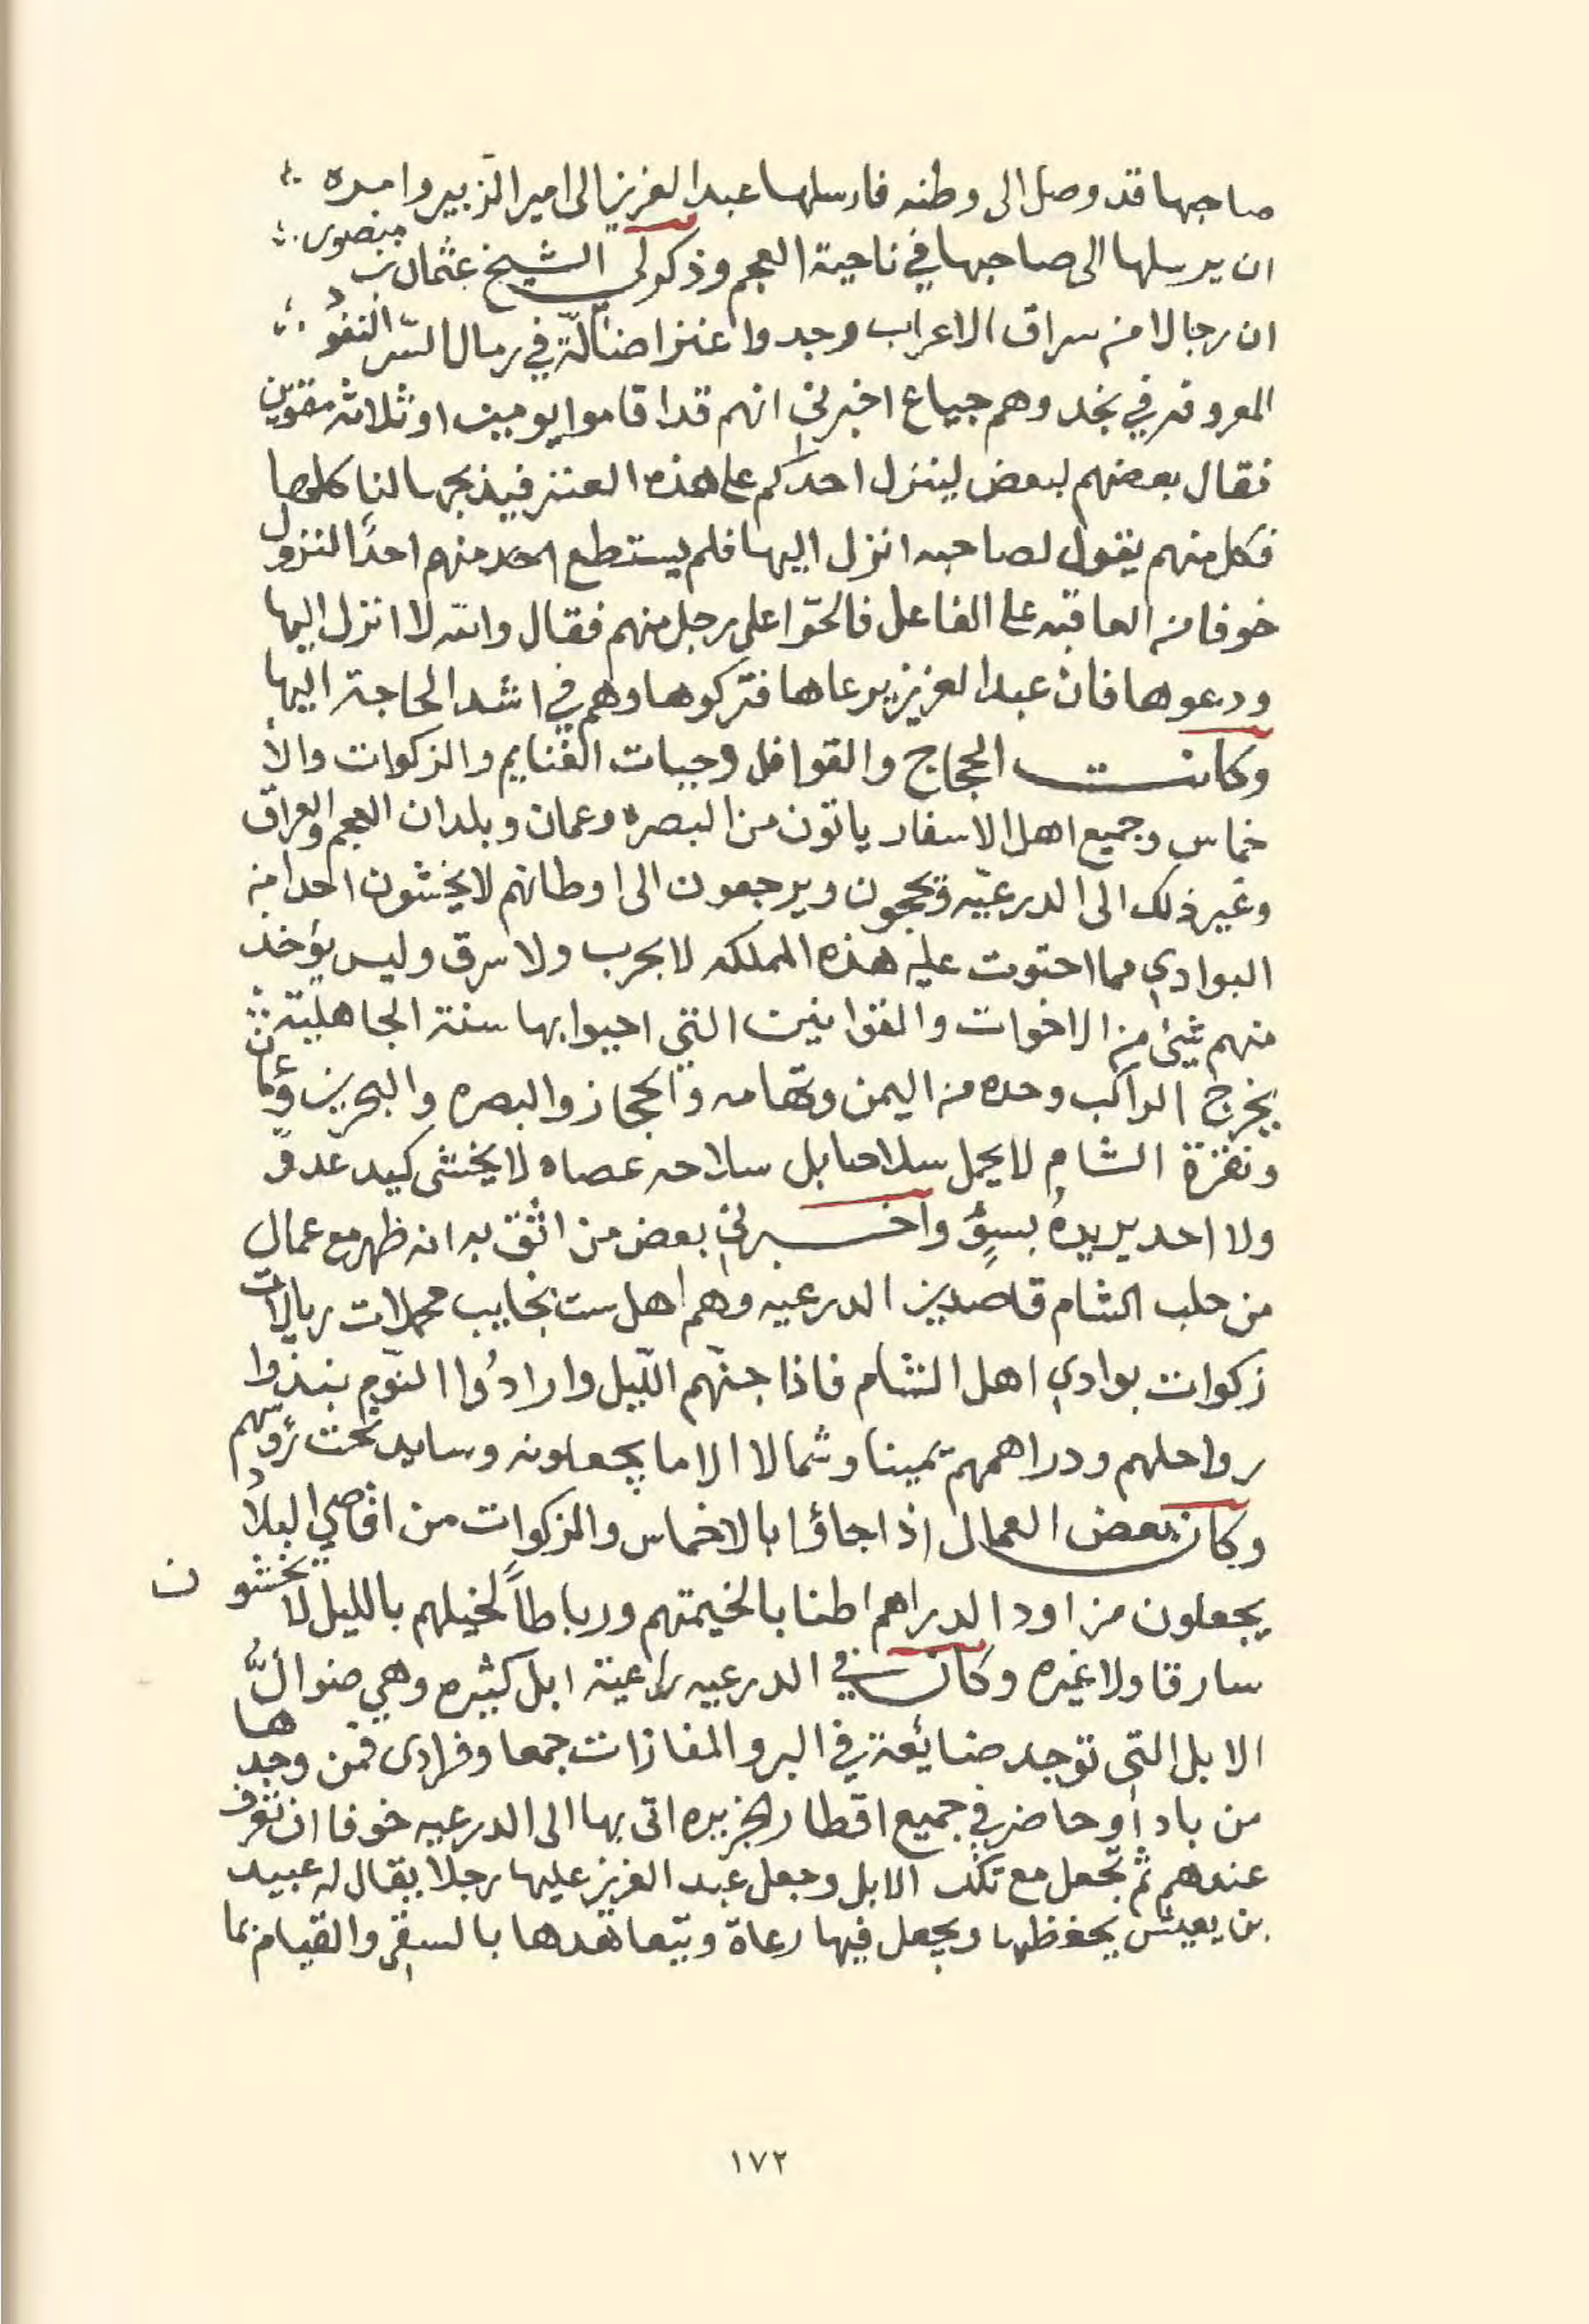 صاحبها قد وصل الى وطنه فارسلها عبد العزيز الى امير الزبير وامره
ان يرسلها الى صاحبها في ناحية العجم وذكر لي الشيخ عثمان بن منصور
ان رجالا من سراق الاعراب وجدوا عنزا ضآلّة في رمال السّر النفود
المعروفه في نجد وهم جياع اخبرني انهم قد اقاموا يومين او ثلاثه مقوين
فقال بعضهم لبعض لينزل احدكم على هذه العنز فيذبحها لناكلها
فكل منهم يقول لصاحبه انزل اليها فلم يستطع احد منهم احدًا النزول
خوفا من العاقبه على الفاعل فالحّوا على رجل منهم فقال والله لا انزل اليها
ودعوها فان عبد العزيز يرعاها فتركوها وهم في اشد الحاجة اليها
وكانت الحجاج والقوافل وجبات الغنايم والزكوات والأ
خماس وجميع اهل الاسفار ياتون من البصره وعمان وبلدان العجم والعراق
وغير ذلك الى الدرعيّه ويحجون ويرجعون الى اوطانهم لا يخشون احدا من
البوادي مما احتوت عليه هذه المملكه لا بحرب ولا سرق وليس يؤخذ
منهم شيئ من الاخوات والقوانين التي احيوا بها سنة الجاهليّة
يخرج الراكب وحده من اليمن وتهامه والحجاز والبصره والبحرين وعمان
ونقرة الشام لا يحمل سلاحا بل سلاحه عصاه لا يخشى كيد عدوّ
ولا احد يريده بسوءٍ واخبرني بعض من اثق به انه ظهر مع عمال
من حلب الشام قاصدين الدرعيه وهم اهل ست نجايب محملات ريالات
زكوات بوادي اهل الشام فاذا جنّهم اللّيل وارادُوا النّوم نبذوا
رواحلهم ودراهمهم يمينا وشمالا الا ما يجعلونه وسايد تحت رؤسهم
وكان بعض العمال اذا جاؤا بالاخماس والزكوات من اقاصي البلاد
يجعلون مزاود الدراهم اطنابا لخيمتهم ورباطاً لخيلهم بالليل لا يخشون
سارقا ولا غيره وكان في الدرعيه راعية ابل كثيره وهي ضوالُّ
الابل التي توجد ضائعة في البر والمفازات جمعا وفرادى فمن وجدها
من باد أو حاضر في جميع اقطار الجزيره اتى بها الى الدرعيه خوفا ان تعرف
عندهم ثم تجعل مع تلك الابل وجعل عبد العزيز عليها رجلا يقال له عبيد
بن يعيش يحفظها ويجعل فيها رعاة ويتعاهدها بالسقي والقيام بما
١٧٢